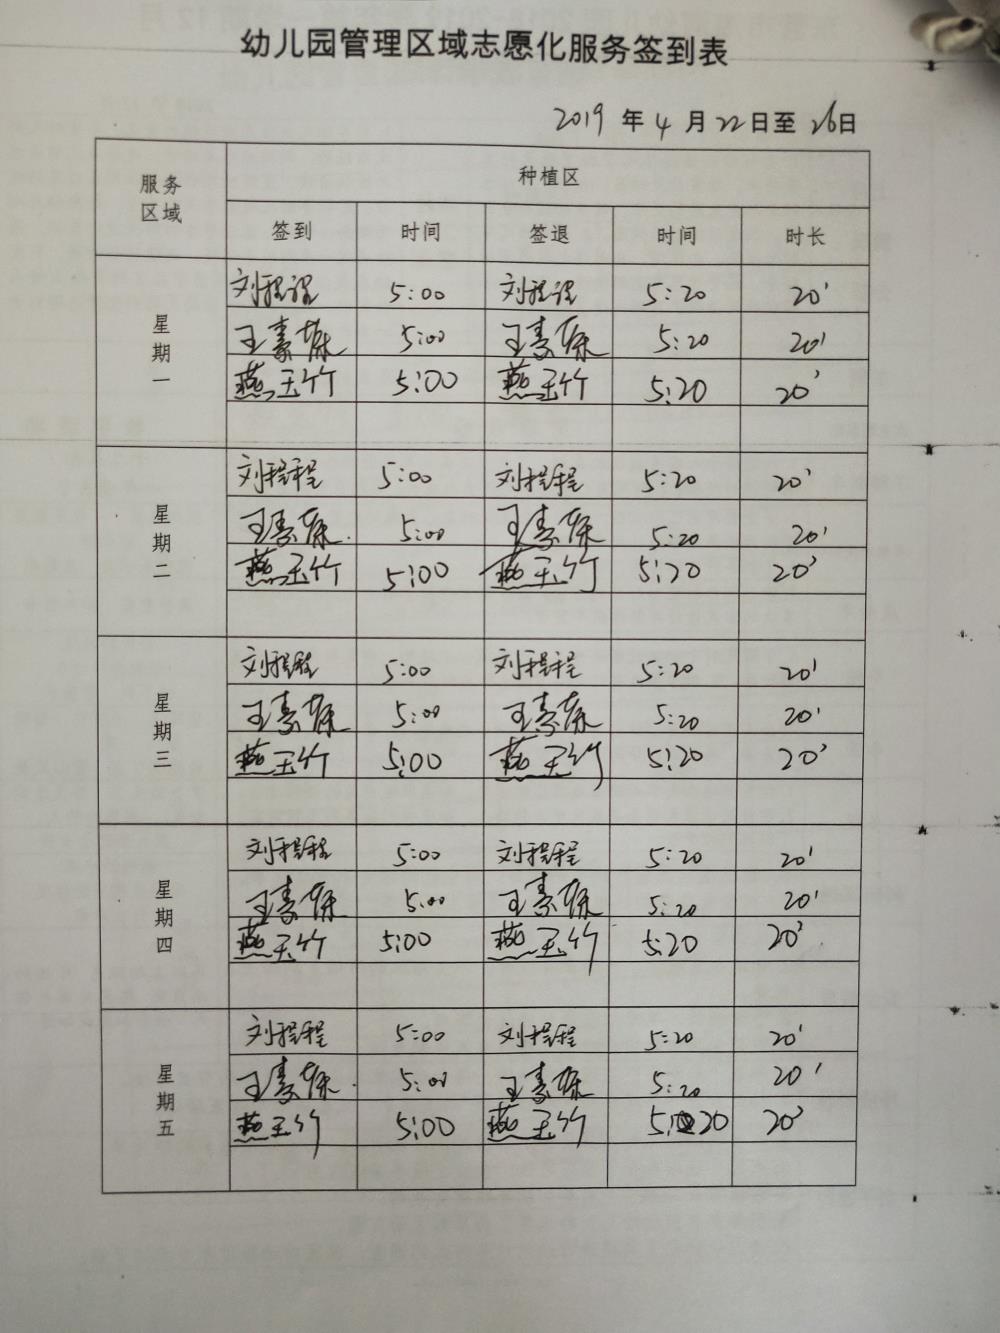 幼儿园管理区域志愿化服务签到表
2019 年 4 月 22 日至 26 日
服务区域 种植区
签到 时间 签退 时间 时长
星期一
刘程程 5:00 刘程程 5:20 20'
王素 5:00 王素 5:20 20'
燕玉竹 5:00 燕玉竹 5:20 20'
星期二
刘程程 5:00 刘程程 5:20 20'
王素 5:00 王素 5:20 20'
燕玉竹 5:00 燕玉竹 5:20 20'
星期三
刘程程 5:00 刘程程 5:20 20'
王素 5:00 王素 5:20 20'
燕玉竹 5:00 燕玉竹 5:20 20'
星期四
刘程程 5:00 刘程程 5:20 20'
王素 5:00 王素 5:20 20'
燕玉竹 5:00 燕玉竹 5:20 20'
星期五
刘程程 5:00 刘程程 5:20 20'
王素 5:00 王素 5:20 20'
燕玉竹 5:00 燕玉竹 5:20 20'